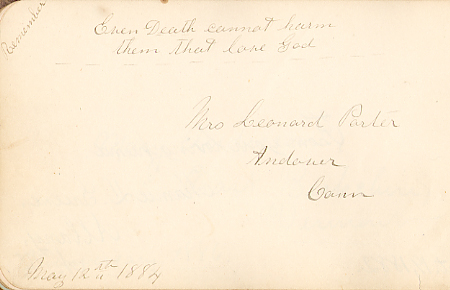 Remember
Even Death cannot harm
them that love God
Mrs Leonard Porter
Andover
Conn
May 12th 1884